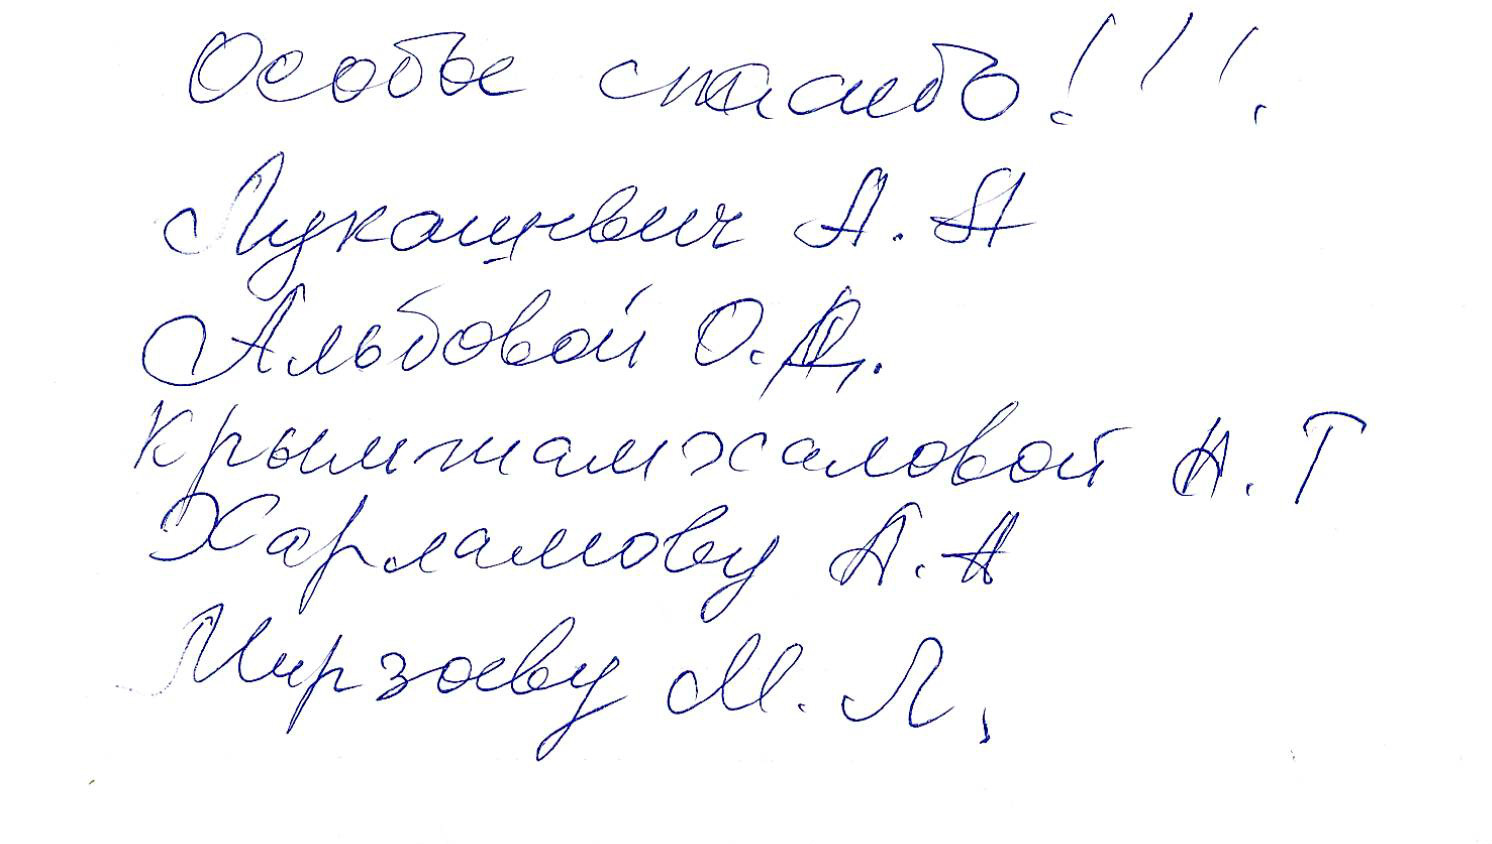 Особое спасибо!!!
Лукашевич А. А
Альбовой О.Д.
Крымшамхаловой А. Т
Харламову А. А
Мирзоеву М. Л.